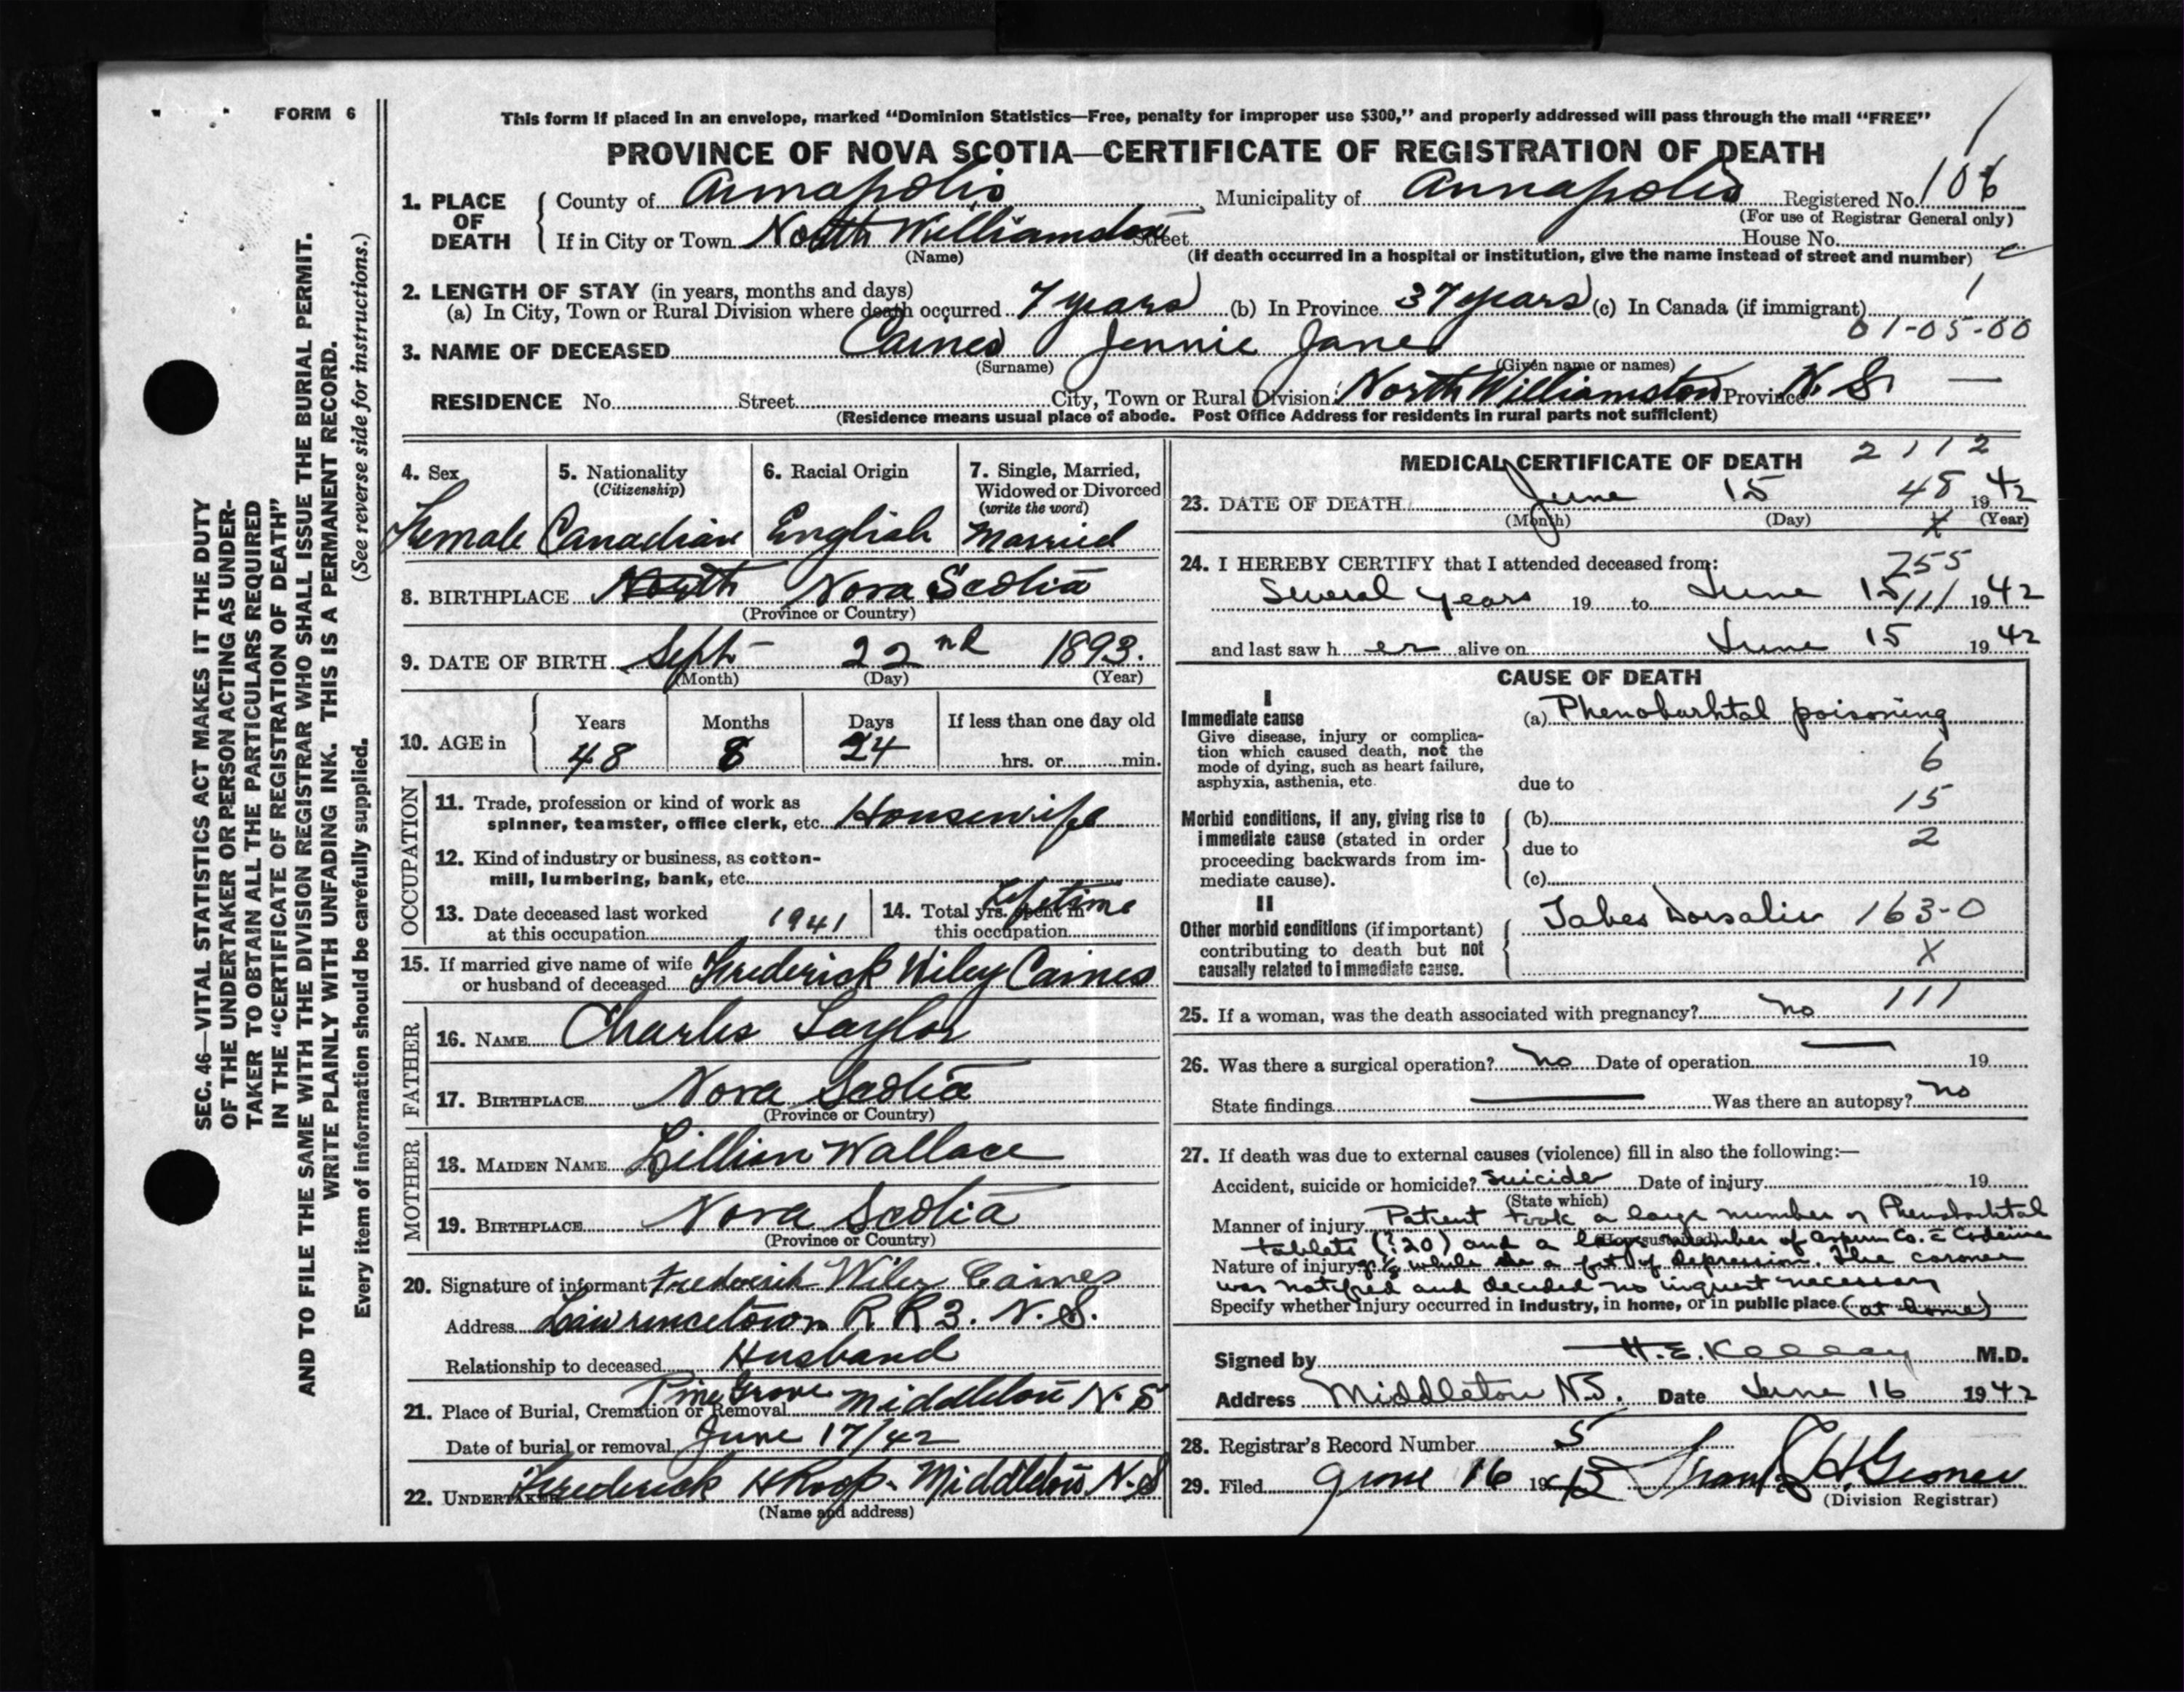 FORM 6
This form if placed in an envelope, marked “Dominion Statistics—Free, penalty for improper use $300,” and properly addressed will pass through the mail “FREE”
PROVINCE OF NOVA SCOTIA—CERTIFICATE OF REGISTRATION OF DEATH
1. PLACE OF DEATH County of Annapolis Municipality of Annapolis Registered No. 106
(For use of Registrar General only)
If in City or Town North Williamston Street House No.
(Name) (If death occurred in a hospital or institution, give the name instead of street and number)
2. LENGTH OF STAY (in years, months and days)
(a) In City, Town or Rural Division where death occurred 7 years (b) In Province 37 years (c) In Canada (if immigrant) 1
01-05-00
3. NAME OF DECEASED Caines Jennie Jane
(Surname) (Given name or names)
RESIDENCE No. Street City, Town or Rural Division North Williamston Province N.S. —
(Residence means usual place of abode. Post Office Address for residents in rural parts not sufficient)
4. Sex Female
5. Nationality (Citizenship) Canadian
6. Racial Origin English
7. Single, Married, Widowed or Divorced (write the word) Married
8. BIRTHPLACE North Nova Scotia
(Province or Country)
9. DATE OF BIRTH Sept 22nd 1893.
(Month) (Day) (Year)
10. AGE in Years 48 Months 8 Days 24 If less than one day old hrs. or min.
OCCUPATION
11. Trade, profession or kind of work as spinner, teamster, office clerk, etc. Housewife
12. Kind of industry or business, as cotton-mill, lumbering, bank, etc.
13. Date deceased last worked at this occupation 1941
14. Total yrs. spent in this occupation Lifetime
15. If married give name of wife or husband of deceased Frederick Wiley Caines
FATHER
16. NAME Charles Taylor
17. BIRTHPLACE Nova Scotia
(Province or Country)
MOTHER
18. MAIDEN NAME Lillian Wallace
19. BIRTHPLACE Nova Scotia
(Province or Country)
20. Signature of informant Frederik Wiley Caines
Address Lawrencetown R R 3. N.S.
Relationship to deceased Husband
21. Place of Burial, Cremation or Removal Pine Grove Middleton N.S
Date of burial or removal June 17/42
22. UNDERTAKER Frederick H Roop - Middleton N.S
(Name and address)
MEDICAL CERTIFICATE OF DEATH 2112
23. DATE OF DEATH June 15 48 1942
(Month) (Day) x (Year)
24. I HEREBY CERTIFY that I attended deceased from: 255
Several years 19 to June 15 111 1942
and last saw her alive on June 15 1942
CAUSE OF DEATH
I
Immediate cause (a) Phenobarbital poisoning
Give disease, injury or complication which caused death, not the mode of dying, such as heart failure, asphyxia, asthenia, etc.
6
due to
15
Morbid conditions, if any, giving rise to immediate cause (stated in order proceeding backwards from immediate cause).
(b)
2
due to
(c)
II
Other morbid conditions (if important) contributing to death but not causally related to immediate cause.
Tabes Dorsalis 163-0
X
25. If a woman, was the death associated with pregnancy? no 111
26. Was there a surgical operation? no Date of operation — 19
State findings — Was there an autopsy? no
27. If death was due to external causes (violence) fill in also the following:—
Accident, suicide or homicide? Suicide Date of injury 19
(State which)
Manner of injury Patient took a large number of Phenobarbital
(How sustained)
tablets (?20) and a large number of aspirin Co. c Codeine
Nature of injury gr ½ while in a fit of depression. The coroner
was notified and decided no inquest necessary
Specify whether injury occurred in industry, in home, or in public place. (at home)
Signed by H. E. Kelley M.D.
Address Middleton N.S. Date June 16 1942
28. Registrar's Record Number 5
29. Filed June 16 19
(Division Registrar)
SEC. 46—VITAL STATISTICS ACT MAKES IT THE DUTY
OF THE UNDERTAKER OR PERSON ACTING AS UNDER-
TAKER TO OBTAIN ALL THE PARTICULARS REQUIRED
IN THE “CERTIFICATE OF REGISTRATION OF DEATH”
AND TO FILE THE SAME WITH THE DIVISION REGISTRAR WHO SHALL ISSUE THE BURIAL PERMIT.
WRITE PLAINLY WITH UNFADING INK. THIS IS A PERMANENT RECORD.
Every item of information should be carefully supplied. (See reverse side for instructions.)